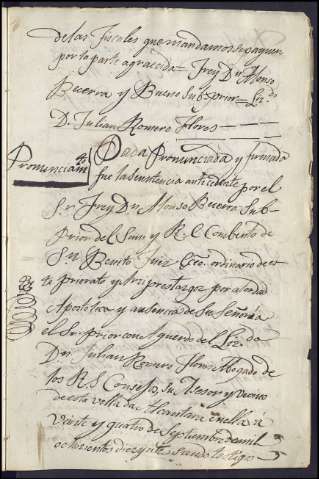 de los Fiscales que mandamos se paguen
por la parte agraciada = Frey Dn Alonso
Becerra y Bueno Subprior = Lizdo
Dn Julian Romero Flores
Pronunciamto
Dada Pronunciada y firmada
fue la Sentencia antecedente por el
Sor Frey Dn Alonso Becerra Sub-
Prior del Sacro y Rl Combento de
Sn Benito Juez Eco ordinario de es-
te Priorato y Arciprestazgo por autoridad
Apostolica y ausencia de Su Señoria
el Sor Prior con Acuerdo del Lizdo
Dn Julian Romero Flores Abogado de
los Rs Consejos, Su Asesor y Vecino
de esta villa de Alcantara en ella a
Veinte y quatro de Septiembre de mil
ochocientos diez y siete siendo testigos